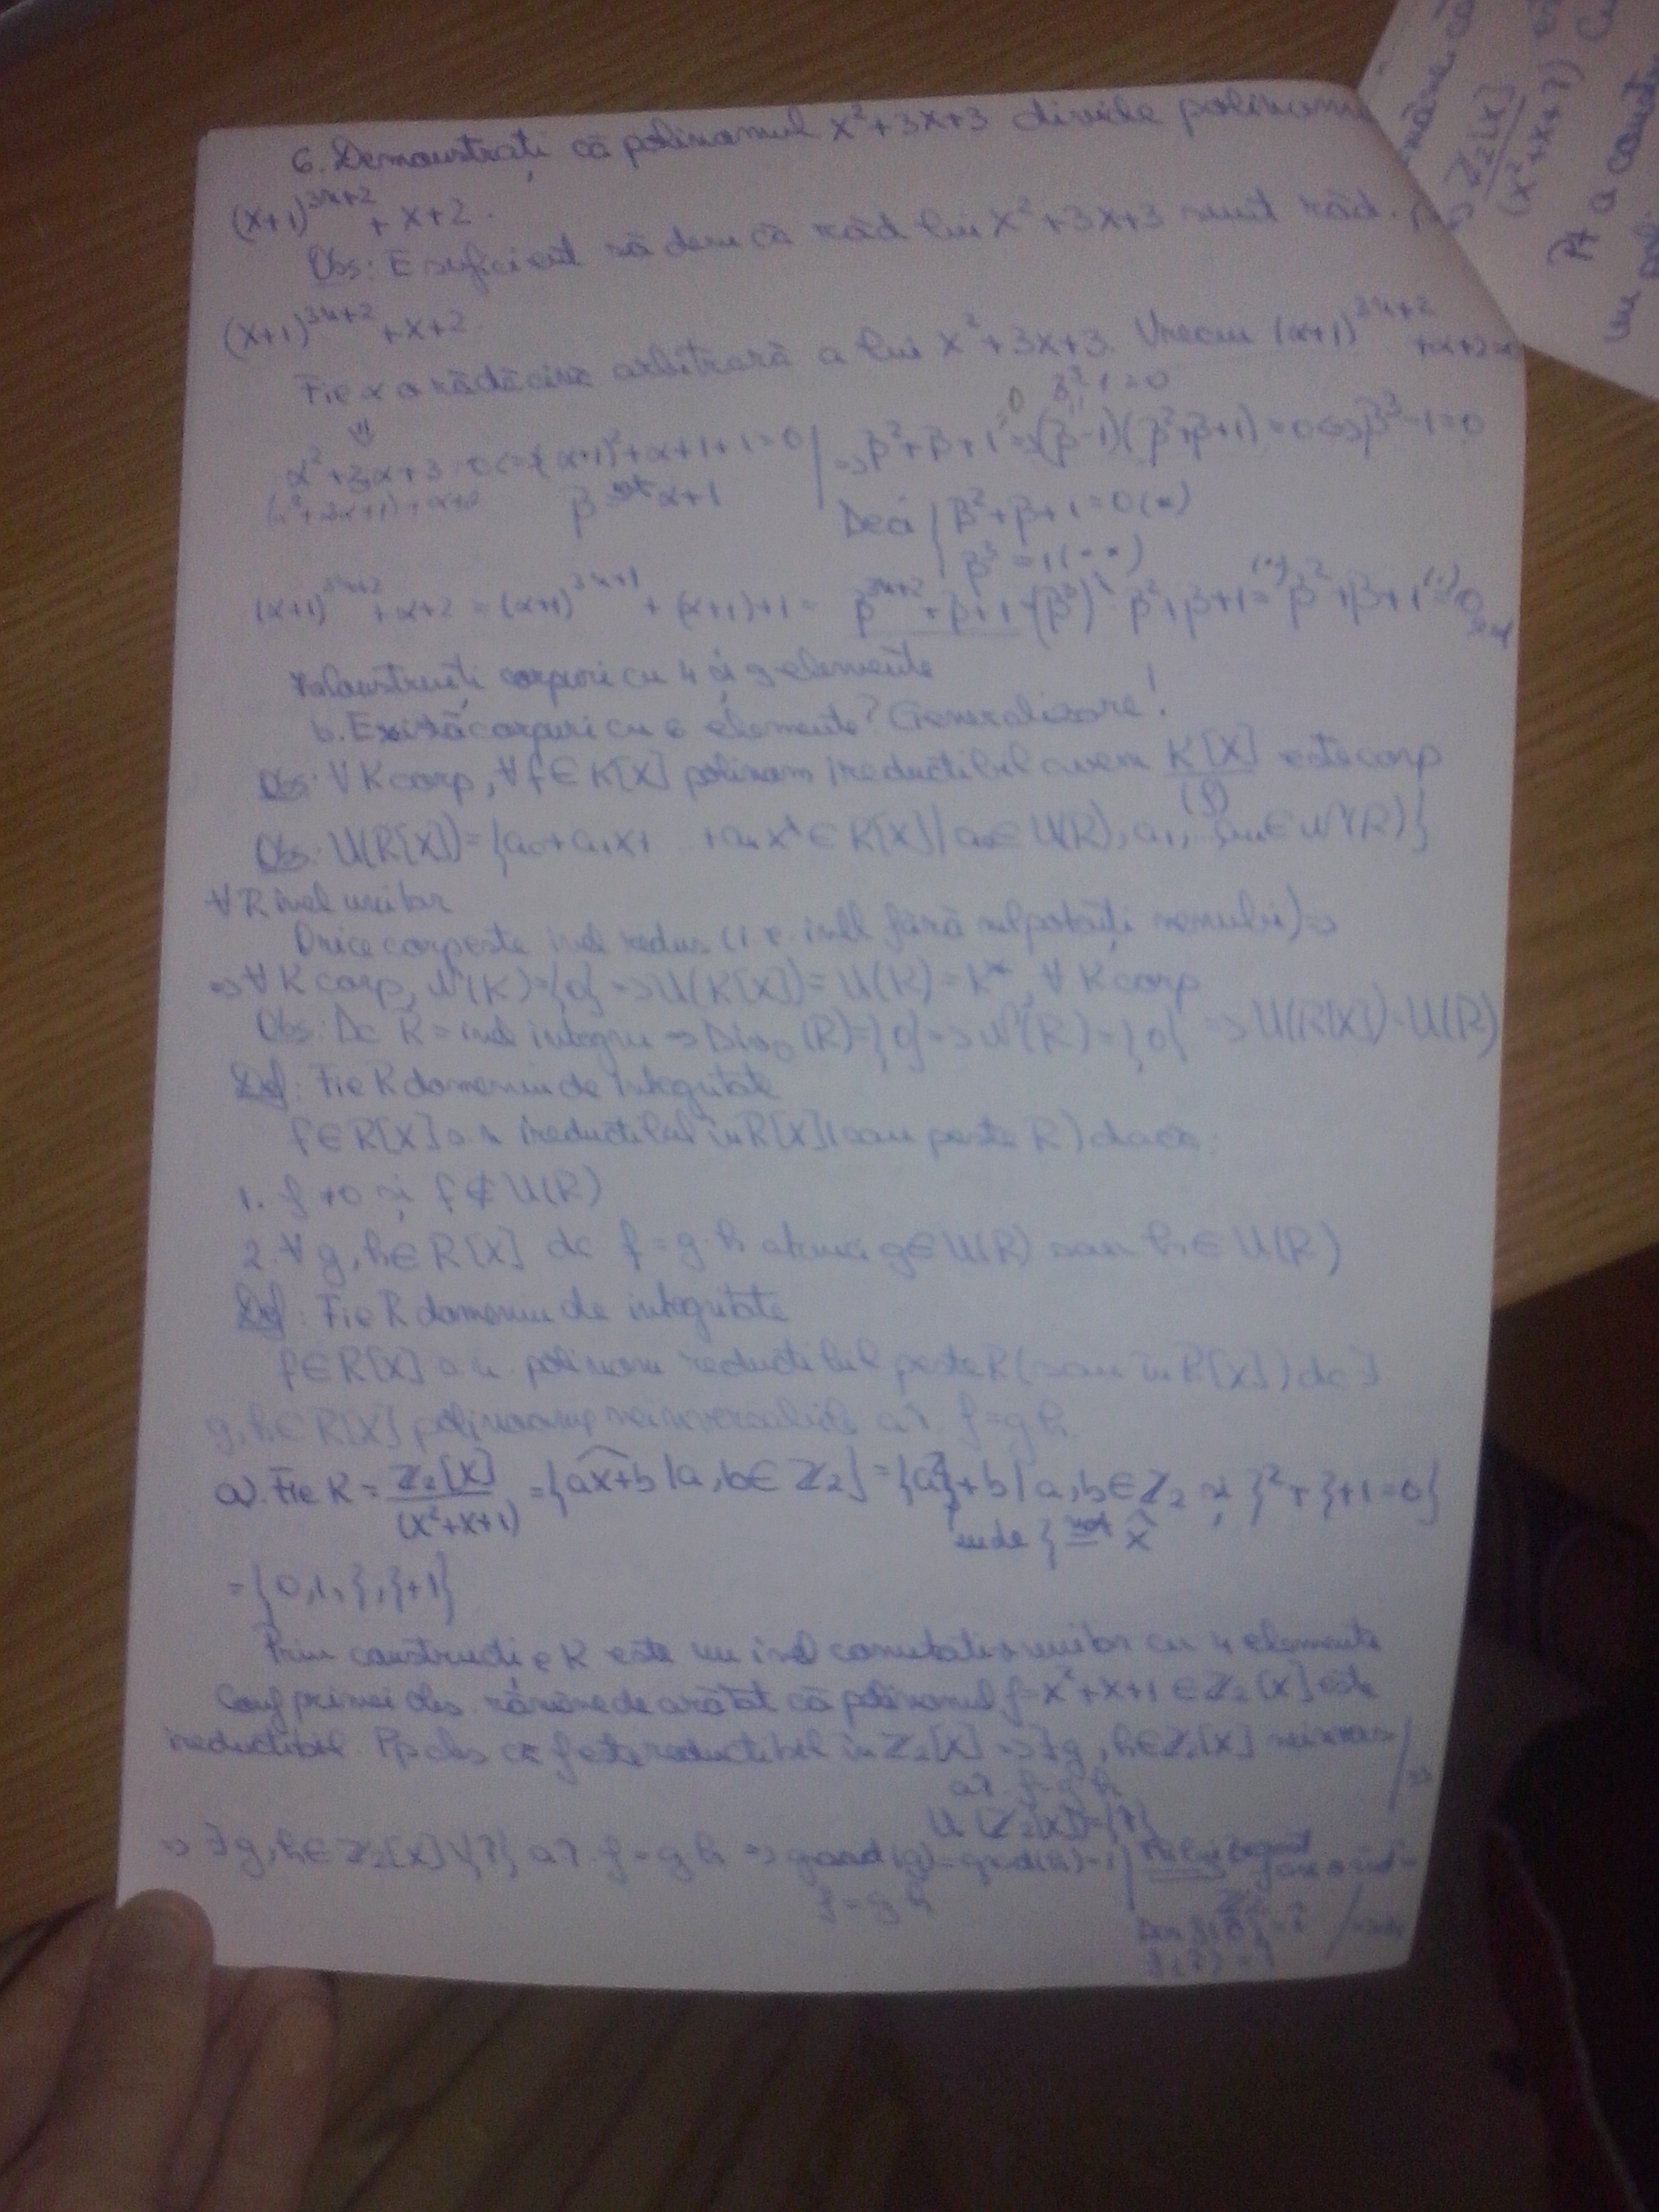 6. Demonstrați că polinomul X²+3X+3 divide polinomu
(X+1)^{3n+2} + X+2.
Obs: E suficient să dem că răd lui X²+3X+3 sunt răd.
(X+1)^{3n+2} + X+2
Fie α o rădăcină arbitrară a lui X²+3X+3. Vrem (α+1)^{3n+2} + α+2=0
α²+3α+3=0 <=> (α+1)²+α+1+1=0 | => β²+β+1=0 => (β-1)(β²+β+1)=0 <=> β³-1=0
(α²+2α+1)+α+2 β not α+1 Deci { β²+β+1=0 (*)
β³=1 (**)
(α+1)^{3n+2}+α+2 = (α+1)^{3n+1} + (α+1)+1 = β^{3n+2}+β+1 = (β³)^n β²+β+1 = β²+β+1 = 0
Construiți corpuri cu 4 și 9 elemente
b. Există corpuri cu 6 elemente? Generalizare!
Obs: ∀ K corp, ∀ f ∈ K[X] polinom ireductibil avem K[X]/(f) este corp
Obs: U(R[X])={a₀+a₁X+ +aₙXⁿ ∈ R[X] | a₀∈U(R), a₁, aₙ∈N(R)}
∀ R inel unitar
Orice corp este inel redus (i.e. inel fără nilpotenți nenuli) =>
=> ∀ K corp, N(K)={0} => U(K[X])= U(K)=K*, ∀ K corp
Obs: Dc R = inel integru => Div₀(R)={0} => N(R)={0} => U(R[X])=U(R)
Def: Fie R domeniu de integritate
f∈R[X] s.n ireductibil în R[X] (sau peste R) dacă:
1. f ≠0 și f ∉ U(R)
2. ∀ g, h∈ R[X] dc f=g·h atunci g∈U(R) sau h∈ U(R)
Def: Fie R domeniu de integritate
f∈R[X] s.n. polinom reductibil peste R (sau în R[X]) dc ∃
g, h∈R[X] polinoame neinversabile a.î. f=gh.
a). Fie K = Z₂[X]/(X²+X+1) = {aX+b | a, b∈ Z₂} = {aξ+b | a, b∈Z₂ și ξ²+ξ+1=0}
unde ξ not X̂
={0, 1, ξ, ξ+1}
Prin construcție K este un inel comutativ unitar cu 4 elemente
Conf primei obs. rămâne de arătat că polinomul f=X²+X+1 ∈ Z₂[X] este
ireductibil. Pp abs că f este reductibil în Z₂[X] => ∃ g, h∈Z₂[X] neinvers
a.î. f=g·h
U(Z₂[X])={1̂}
=> ∃ g, h∈ Z₂[X]\{1̂} a.î. f=g·h => grad(g)=grad(h)=1
f=g·h
Z₂
Dar f(0̂)=1̂
f(1̂)=1̂